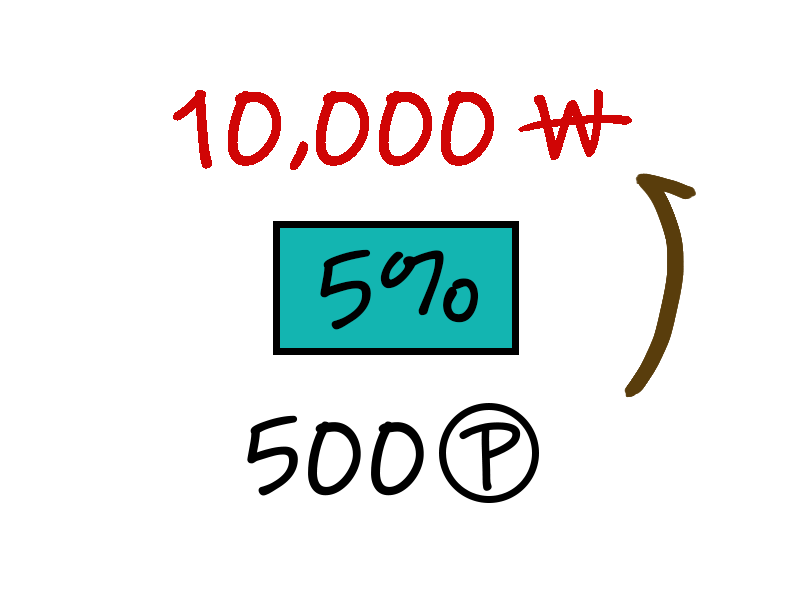 10,000 ₩
5%
500 Ⓟ